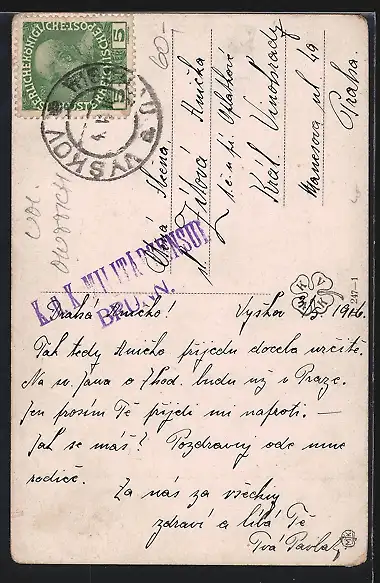 5 5
WISCHAU
VYŠKOV
60,-
Ctěná slečna
Anička
Zítková
č. č. u pí. Oplatkové
Král Vinohrady
Manesova ul 49
Praha.
K.u.K. MILITÄRZENSUR
BRÜNN.
K V K
247-1
Drahá Aničko! Vyškov 1916.
Tak tedy Aničko přijedu docela určitě.
Na sv. Jana o 7 hod. budu už v Praze.
Jen prosím Tě přijdi mi naproti. —
Jak se máš? Pozdravuj ode mne
rodiče.
Za nás za všechny
zdraví a líbá Tě
Tvá Pavla
MK